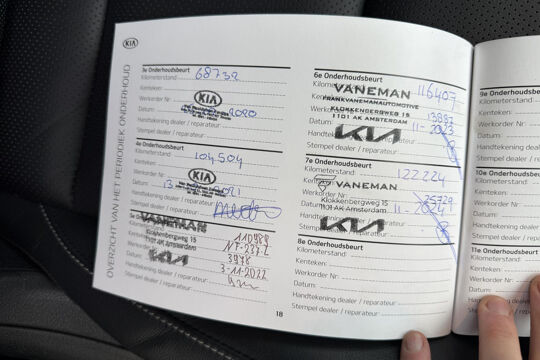 KIA
OVERZICHT VAN HET PERIODIEK ONDERHOUD
3e Onderhoudsbeurt
Kilometerstand: 68732
Kenteken:
Werkorder Nr.:
KIA
Datum: 2020
Handtekening dealer / reparateur:
Stempel dealer / reparateur:
4e Onderhoudsbeurt
Kilometerstand: 104504
Kenteken:
Werkorder Nr.:
KIA
Datum: 13
Handtekening dealer / reparateur:
Stempel dealer / reparateur:
VANEMAN
Klokkenbergweg 15
1101 AK Amsterdam
KIA
3978
3-11-2022
Stempel dealer / reparateur:
6e Onderhoudsbeurt
Kilometerstand: 116407
VANEMAN
FRANKVANEMANAUTOMOTIVE
KLOKKENBERGWEG 15
1101 AK AMSTERDAM
Werkorder Nr.:
Datum: 11-2023
KIA
Stempel dealer / reparateur:
7e Onderhoudsbeurt
Kilometerstand: 122224
VANEMAN
Klokkenbergweg 15
1101 AK Amsterdam
25729
Datum: 11-2024
KIA
Stempel dealer / reparateur:
8e Onderhoudsbeurt
Kilometerstand:
Kenteken:
Werkorder Nr.:
Datum:
Handtekening dealer / reparateur:
Stempel dealer / reparateur:
18
9e Onderhoudsbeurt
Kilometerstand:
Kenteken:
Werkorder Nr.:
Datum:
Handtekening
Stempel dealer
10e Onderhoudsbeurt
Kilometerstand:
Kenteken:
Werkorder Nr.:
Datum:
Handtekening
Stempel dealer
11e Onderhoudsbeurt
Kilometerstand:
Kenteken:
Werkorder Nr.:
Datum: